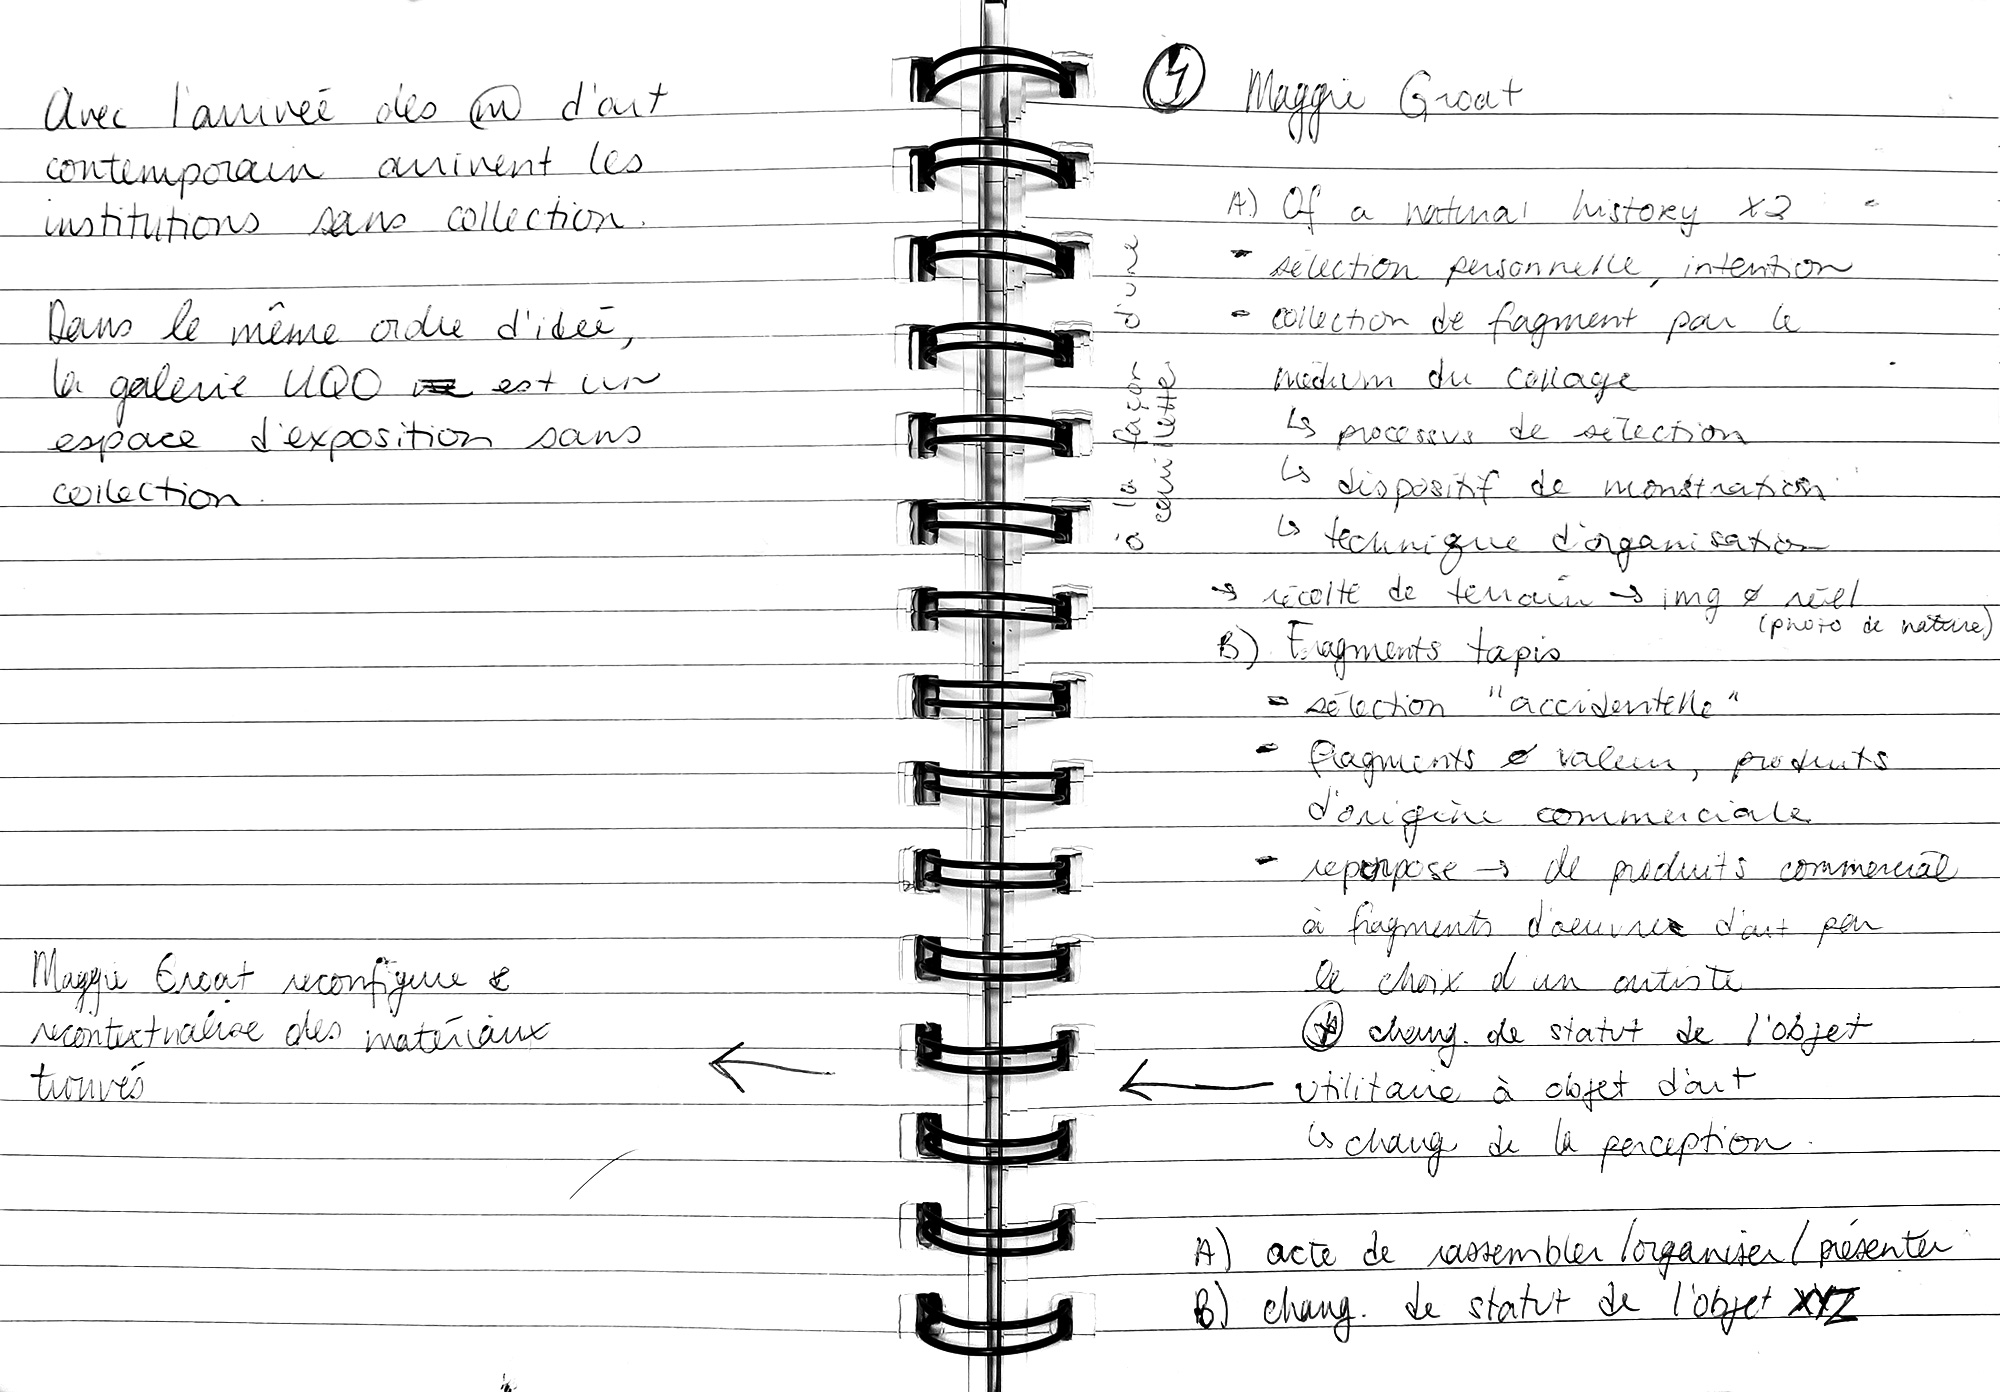 Avec l'arriveé des (m) d'art
contemporain arrivent les
institutions sans collection.
Dans le même ordre d'ideé,
la galerie UQO est un
espace d'exposition sans
collection.
Maggie Groat reconfigure &
recontextualise des matériaux
trouvés
4 Maggie Groat
A) Of a natural history x2
- sélection personnelle, intention
- collection de fragment par le
médium du collage
↳ processus de sélection
↳ dispositif de monstration
↳ technique d'organisation
à la façon d'une
cueillette
→ récolte de terrain → img ø réel
(photo de nature)
B) Fragments tapis
- sélection "accidentelle"
- fragments ø valeur, produits
d'origine commerciale
- repurpose → de produits commercial
à fragments d'oeuvre d'art par
le choix d'un artiste
chang. de statut de l'objet
← utilitaire à objet d'art
↳ chang de la perception.
A) acte de rassembler/organiser/présenter
B) chang. de statut de l'objet XYZ